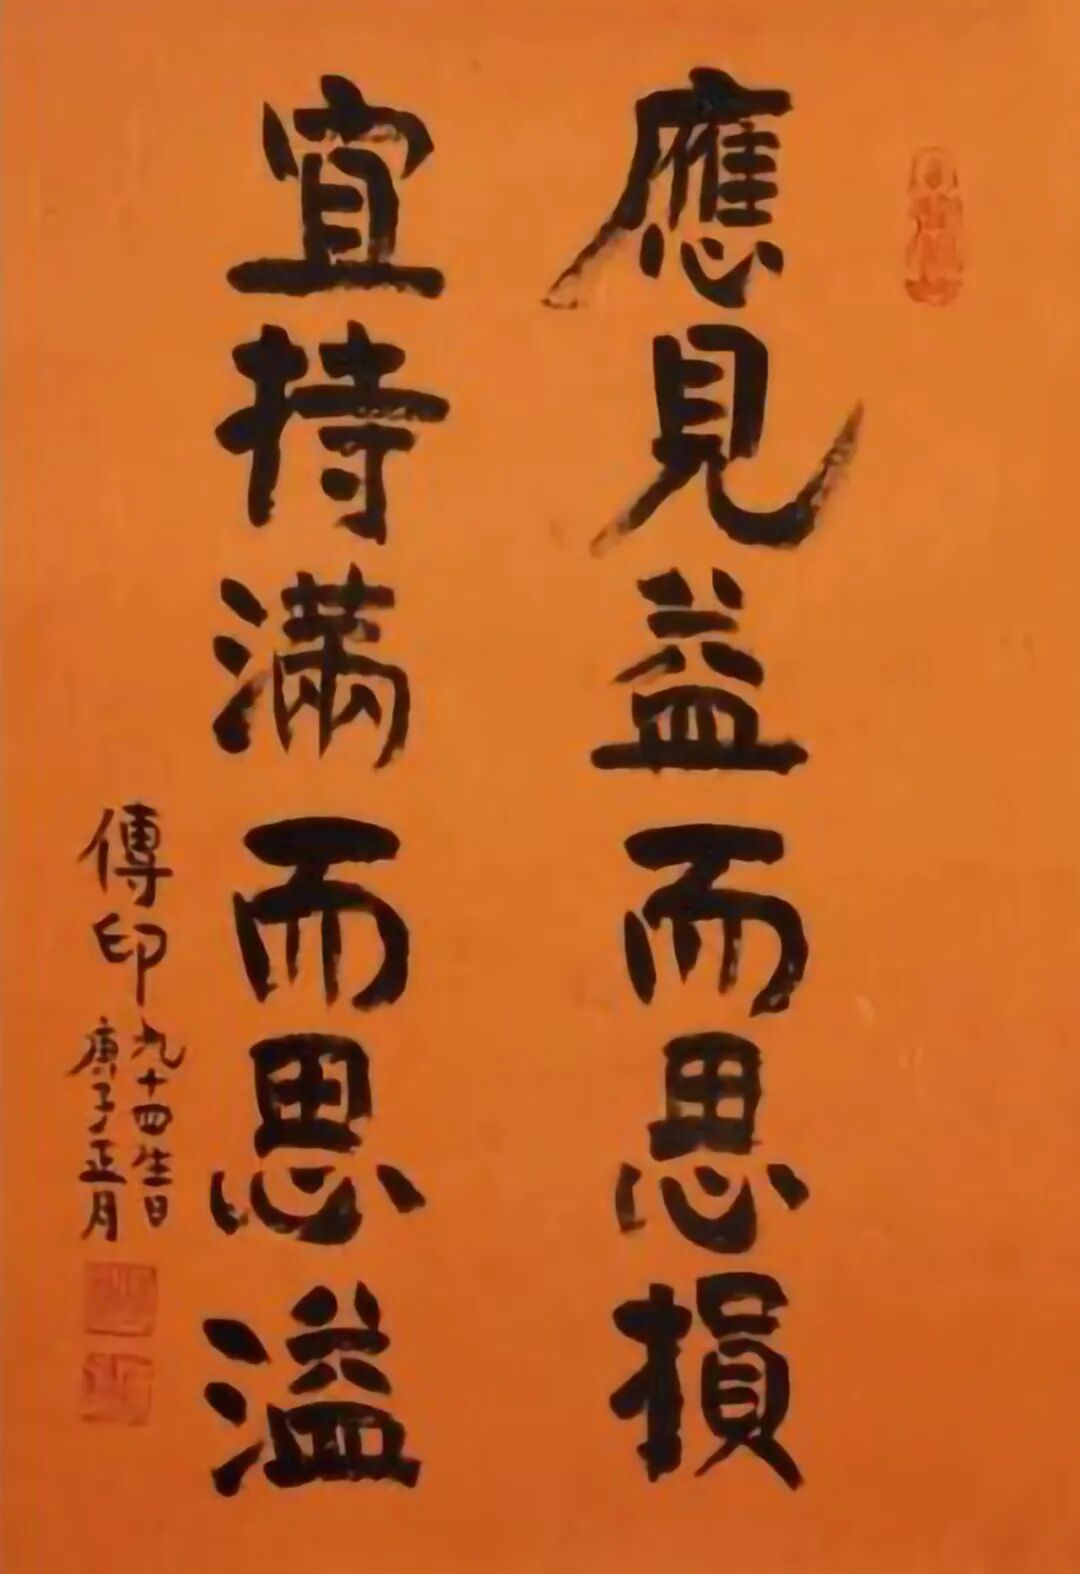 應見益而思損
宜持滿而思溢
傳印
九十四生日
庚子正月